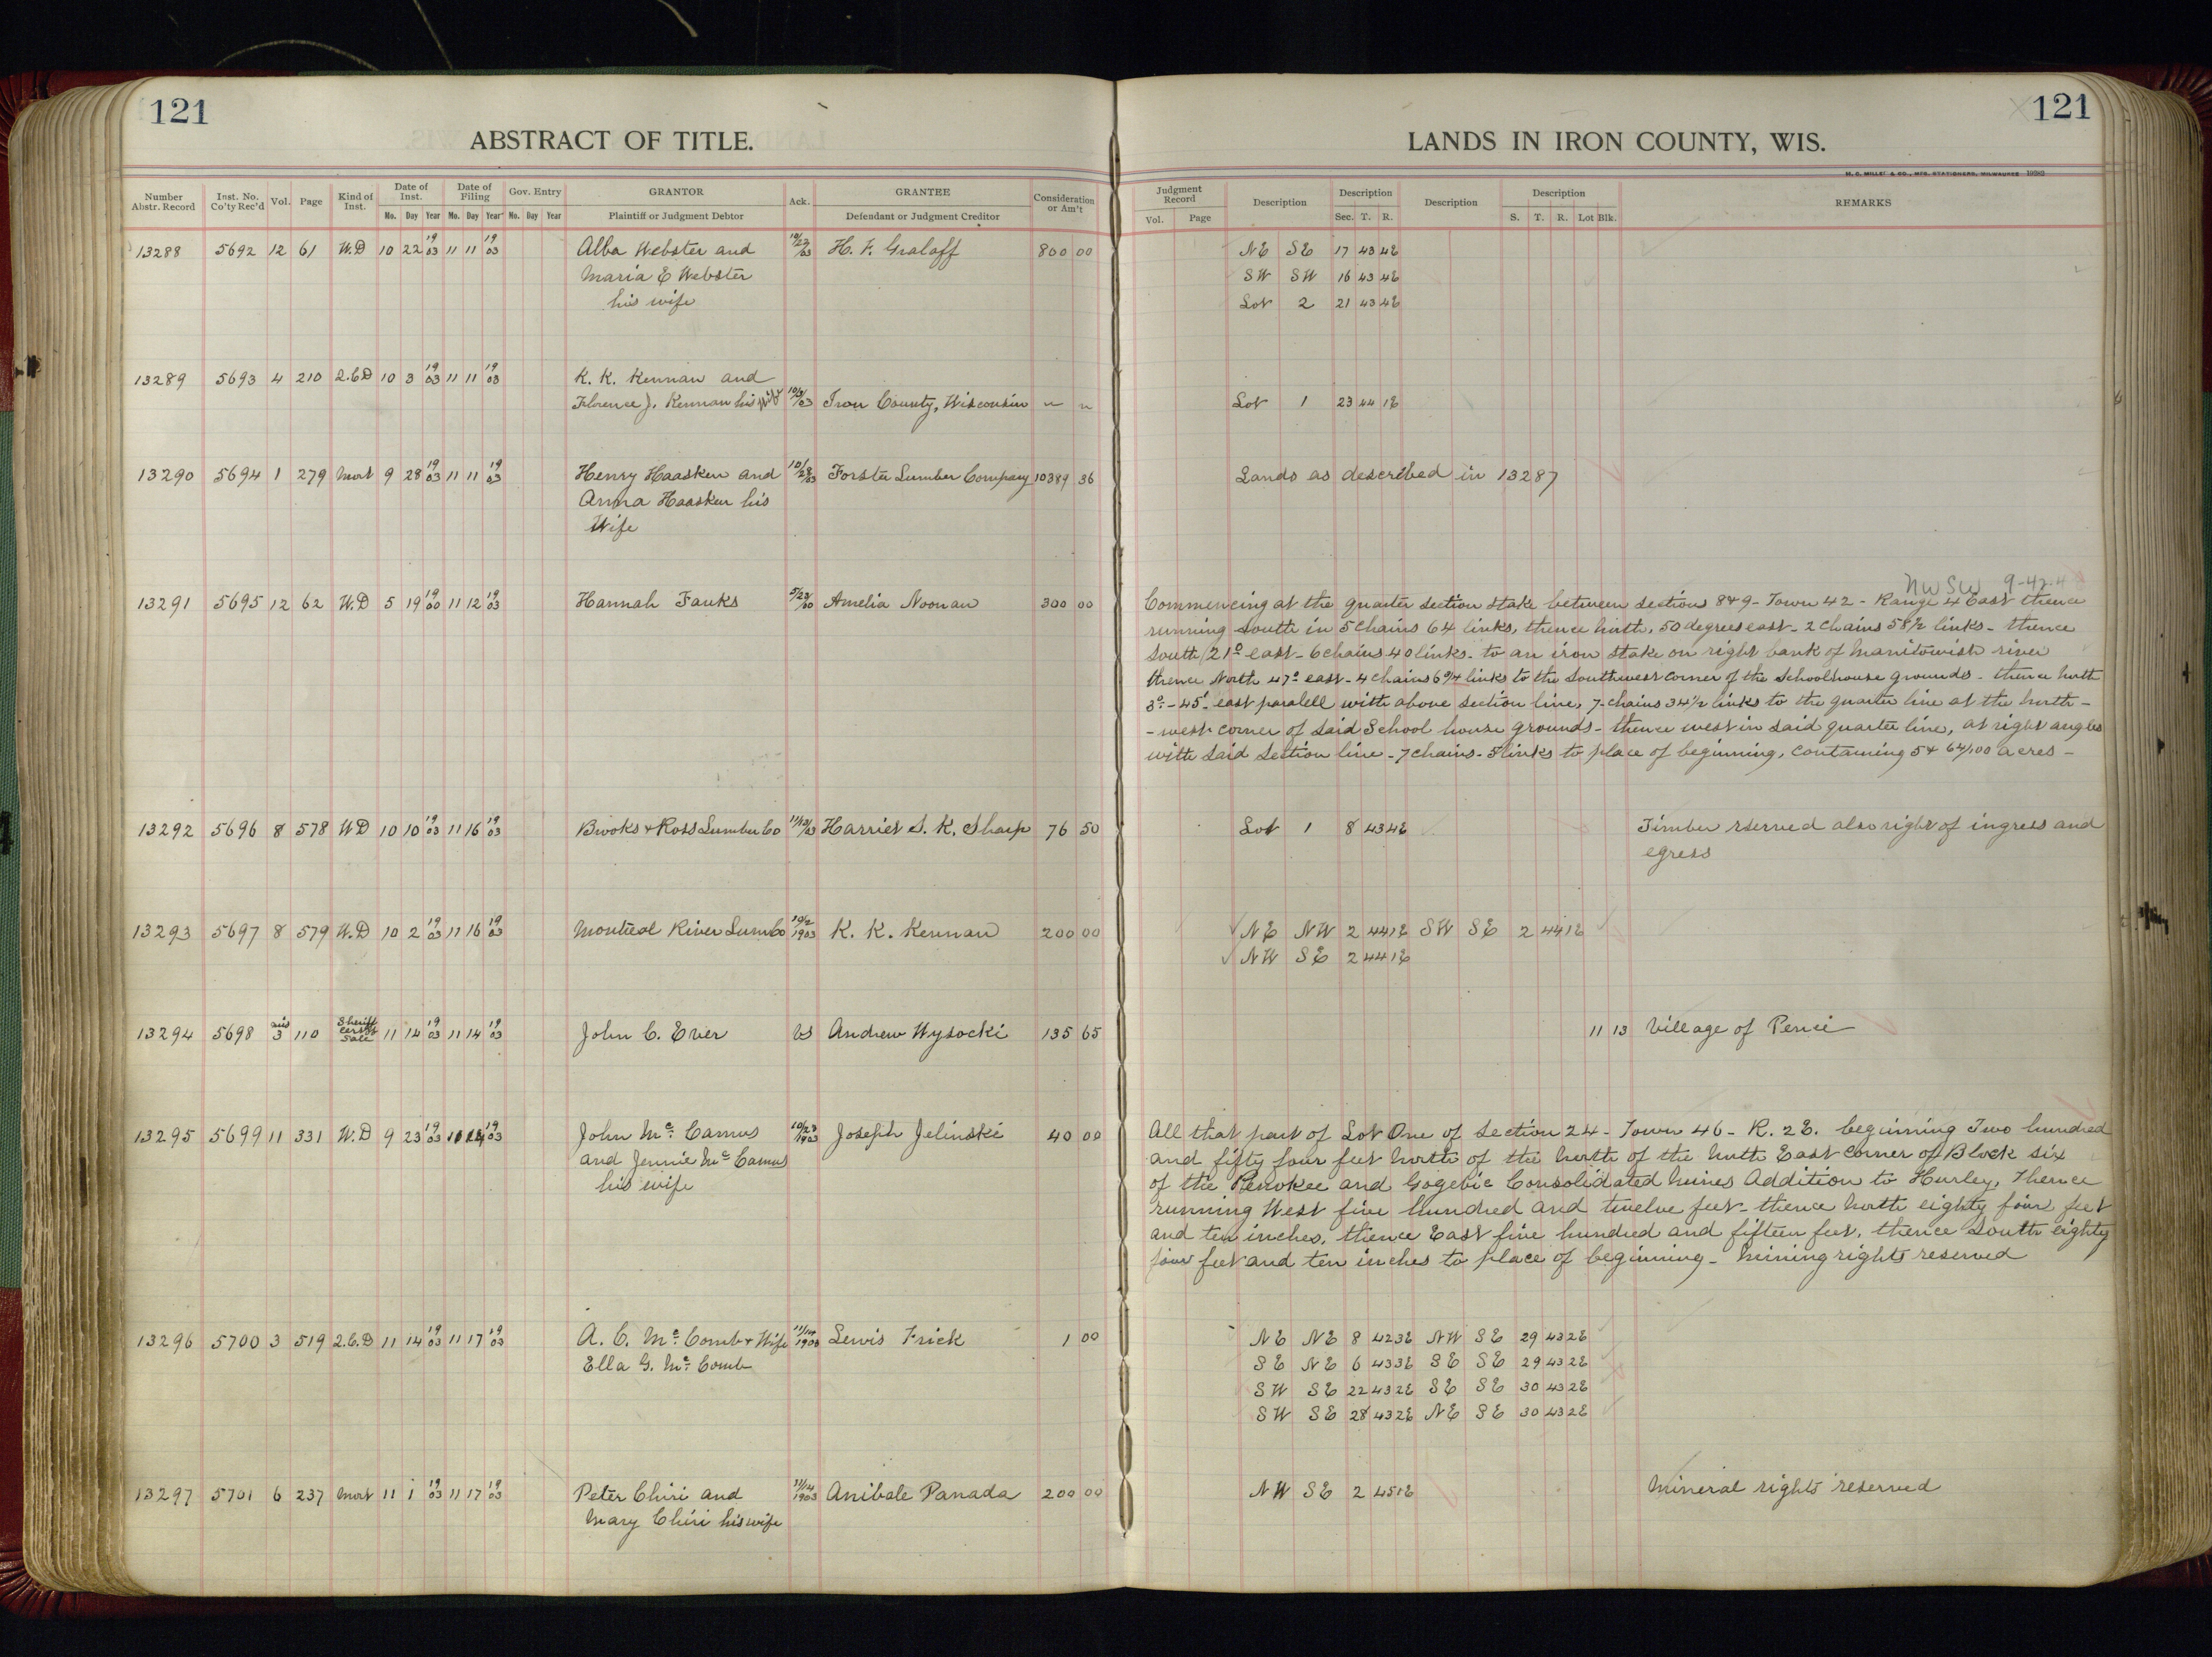 121
ABSTRACT OF TITLE.
Number Abstr. Record Inst. No. Co'ty Rec'd Vol. Page Kind of Inst. Date of Inst. Mo. Day Year Date of Filing Mo. Day Year Gov. Entry No. Day Year GRANTOR Plaintiff or Judgment Debtor Ack. GRANTEE Defendant or Judgment Creditor Consideration or Am't
13288 5692 12 61 W.D 10 22 19 03 11 11 19 03 Alba Webster and 10/22 03 H. F. Gralaff 800 00
Maria E Webster
his wife
13289 5693 4 210 Q.C.D 10 3 19 03 11 11 19 03 K. K. Kennan and
Florence J. Kennan his wife 10/3 03 Iron County, Wisconsin " "
13290 5694 1 279 Mort 9 28 19 03 11 11 19 03 Henry Haasken and 10/28 03 Forster Lumber Company 10389 36
Anna Haasken his
Wife
13291 5695 12 62 W.D 5 19 19 00 11 12 19 03 Hannah Fauks 5/23 00 Amelia Noonan 300 00
13292 5696 8 578 WD 10 10 19 03 11 16 19 03 Brooks & Ross Lumber Co 11/13 03 Harriet S. K. Sharp 76 50
13293 5697 8 579 W.D 10 2 19 03 11 16 19 03 Montreal River Lum Co 10/2 1903 K. K. Kennan 200 00
13294 5698 mis 3 110 Sheriff Cert of Sale 11 14 19 03 11 14 19 03 John C. Ever vs Andrew Wysocki 135 65
13295 5699 11 331 W.D 9 23 19 03 19 03 John Mc Camus 10/23 1903 Joseph Jelinski 40 00
and Jennie Mc Camus
his wife
13296 5700 3 519 Q.C.D 11 14 19 03 11 17 19 03 A. C. Mc Comb & Wife 11/14 1903 Lewis Frick 1 00
Ella G. Mc Comb
13297 5701 6 237 Mort 11 1 19 03 11 17 19 03 Peter Chiri and 11/14 1903 Anibale Panada 200 00
Mary Chiri his wife
121
LANDS IN IRON COUNTY, WIS.
H. C. MILLER & CO., MFG. STATIONERS, MILWAUKEE
Judgment Record Vol. Page Description Description Sec. T. R. Description Description S. T. R. Lot Blk. REMARKS
NE SE 17 43 4E
SW SW 16 43 4E
Lot 2 21 43 4E
Lot 1 23 44 1E
Lands as described in 13287
NW SW 9-42-4
Commencing at the quarter section stake between sections 8 & 9 - Town 42 - Range 4 East thence
running south in 5 chains 64 links, thence north, 50 degrees east - 2 chains 58 1/2 links - thence
south 21° east - 6 chains 40 links - to an iron stake on right bank of Manitowish river
thence North 47° east - 4 chains 6 3/4 links to the southwest corner of the schoolhouse grounds - thence north
3° - 45' east paralell with above section line, 7 chains 34 1/2 links to the quarter line at the north -
- west corner of said School house grounds - thence west in said quarter line, at right angles
with said section line - 7 chains - 5 links to place of beginning, containing 5 & 64/100 acres -
Lot 1 8 43 4E Timber rserved also right of ingress and
egress
NE NW 2 44 1E SW SE 2 44 1E
NW SE 2 44 1E
11 13 Village of Pence
All that part of Lot One of section 24 - Town 46 - R. 2E. beginning Two hundred
and fifty four feet north of the north of the north East corner of Block six
of the Penokee and Gogebic Consolidated mines Addition to Hurley, Thence
running West five hundred and twelve feet - thence north eighty four feet
and ten inches, thence East five hundred and fifteen feet, thence South eighty
four feet and ten inches to place of beginning - Mining rights reserved
NE NE 8 42 3E NW SE 29 43 2E
SE NE 6 43 3E SE SE 29 43 2E
SW SE 22 43 2E SE SE 30 43 2E
SW SE 28 43 2E NE SE 30 43 2E
NW SE 2 45 1E Mineral rights reserved